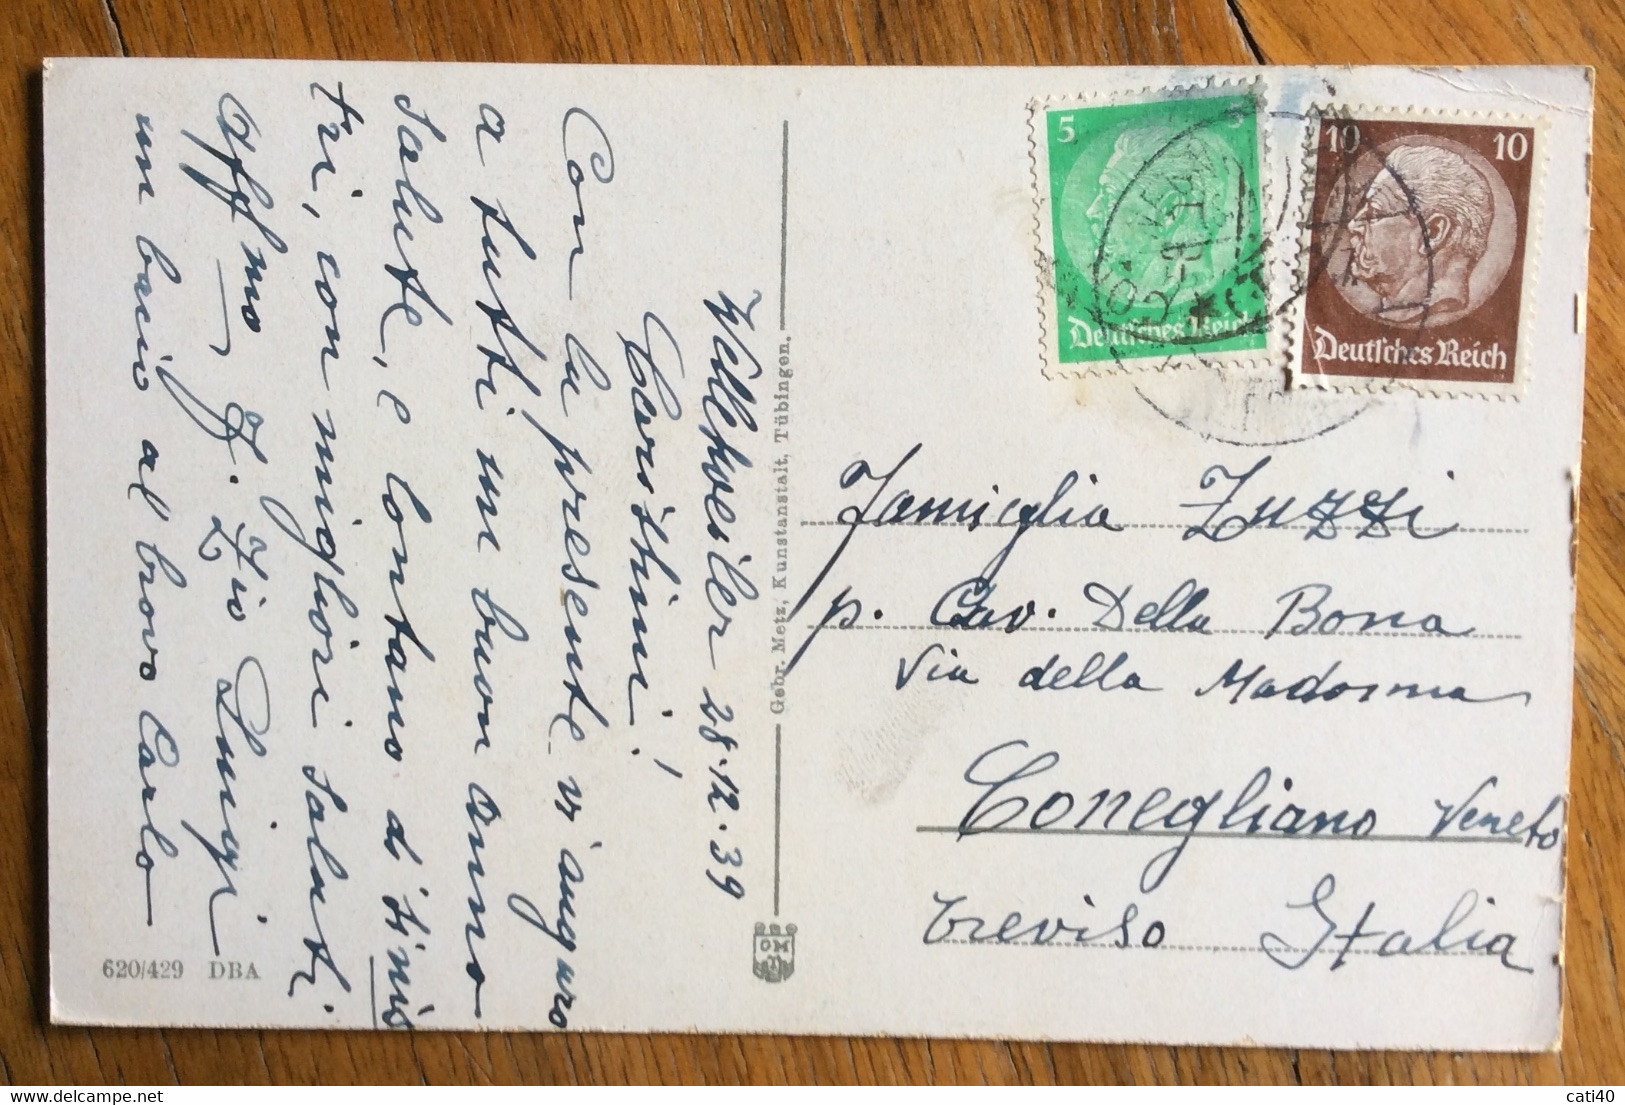 Wellesweiler 28.12.39
Carissimi!
Con la presente vi auguro
a tutti un buon anno
salute, e
tri, con migliori saluti
Aff.mo Z. Zio Luigi
un bacio al bravo Carlo
Gebr. Metz, Kunstanstalt, Tübingen.
620/429 DBA
5 5
Deutsches Reich
10 10
Deutsches Reich
Famiglia Zuzzi
p. Cav. Della Bona
Via della Madonna
Conegliano Veneto
Treviso Italia
cati40